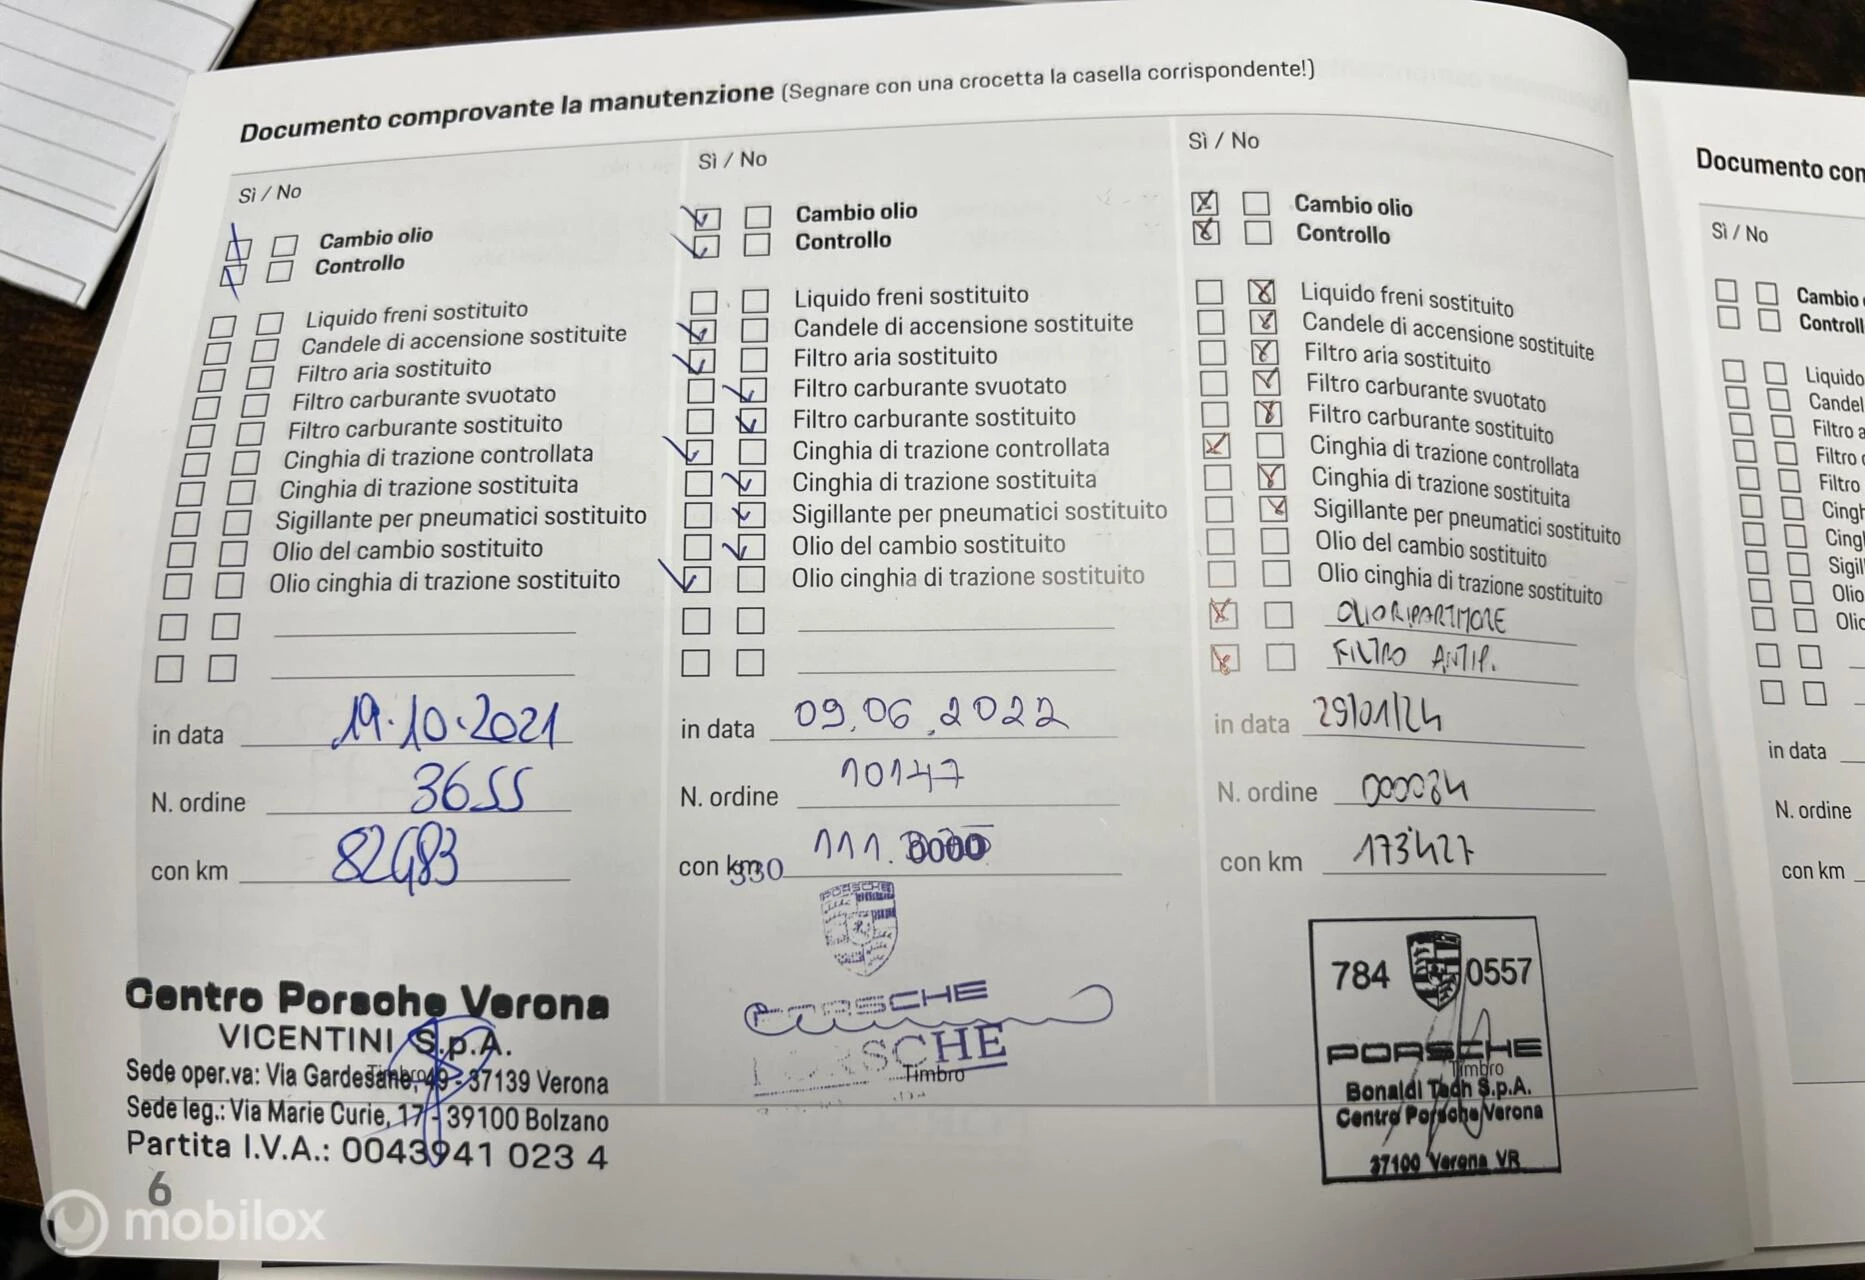 Documento comprovante la manutenzione (Segnare con una crocetta la casella corrispondente!)
Sì / No
Cambio olio
Controllo
Liquido freni sostituito
Candele di accensione sostituite
Filtro aria sostituito
Filtro carburante svuotato
Filtro carburante sostituito
Cinghia di trazione controllata
Cinghia di trazione sostituita
Sigillante per pneumatici sostituito
Olio del cambio sostituito
Olio cinghia di trazione sostituito
in data 19.10.2021
N. ordine 3655
con km 82483
Centro Porsche Verona
VICENTINI S.p.A.
Sede oper.va: Via Gardesane, 49 - 37139 Verona
Sede leg.: Via Marie Curie, 17 - 39100 Bolzano
Partita I.V.A.: 0043941 023 4
6
Sì / No
Cambio olio
Controllo
Liquido freni sostituito
Candele di accensione sostituite
Filtro aria sostituito
Filtro carburante svuotato
Filtro carburante sostituito
Cinghia di trazione controllata
Cinghia di trazione sostituita
Sigillante per pneumatici sostituito
Olio del cambio sostituito
Olio cinghia di trazione sostituito
in data 09.06.2022
N. ordine 10147
con km 111.
330
PORSCHE
PORSCHE
PORSCHE
Timbro
Sì / No
Cambio olio
Controllo
Liquido freni sostituito
Candele di accensione sostituite
Filtro aria sostituito
Filtro carburante svuotato
Filtro carburante sostituito
Cinghia di trazione controllata
Cinghia di trazione sostituita
Sigillante per pneumatici sostituito
Olio del cambio sostituito
Olio cinghia di trazione sostituito
OLIO RIPARTITORE
FILTRO ANTIP.
in data 29/01/24
N. ordine 000084
con km 173427
784 0557
PORSCHE
Timbro
Bonaldi Tech S.p.A.
Centro Porsche Verona
37100 Verona VR
Documento con
Sì / No
Cambio
Controll
Liquido
Candel
Filtro a
Filtro
Filtro
Cingh
Cing
Sigil
Olio
Olio
in data
N. ordine
con km
mobilox